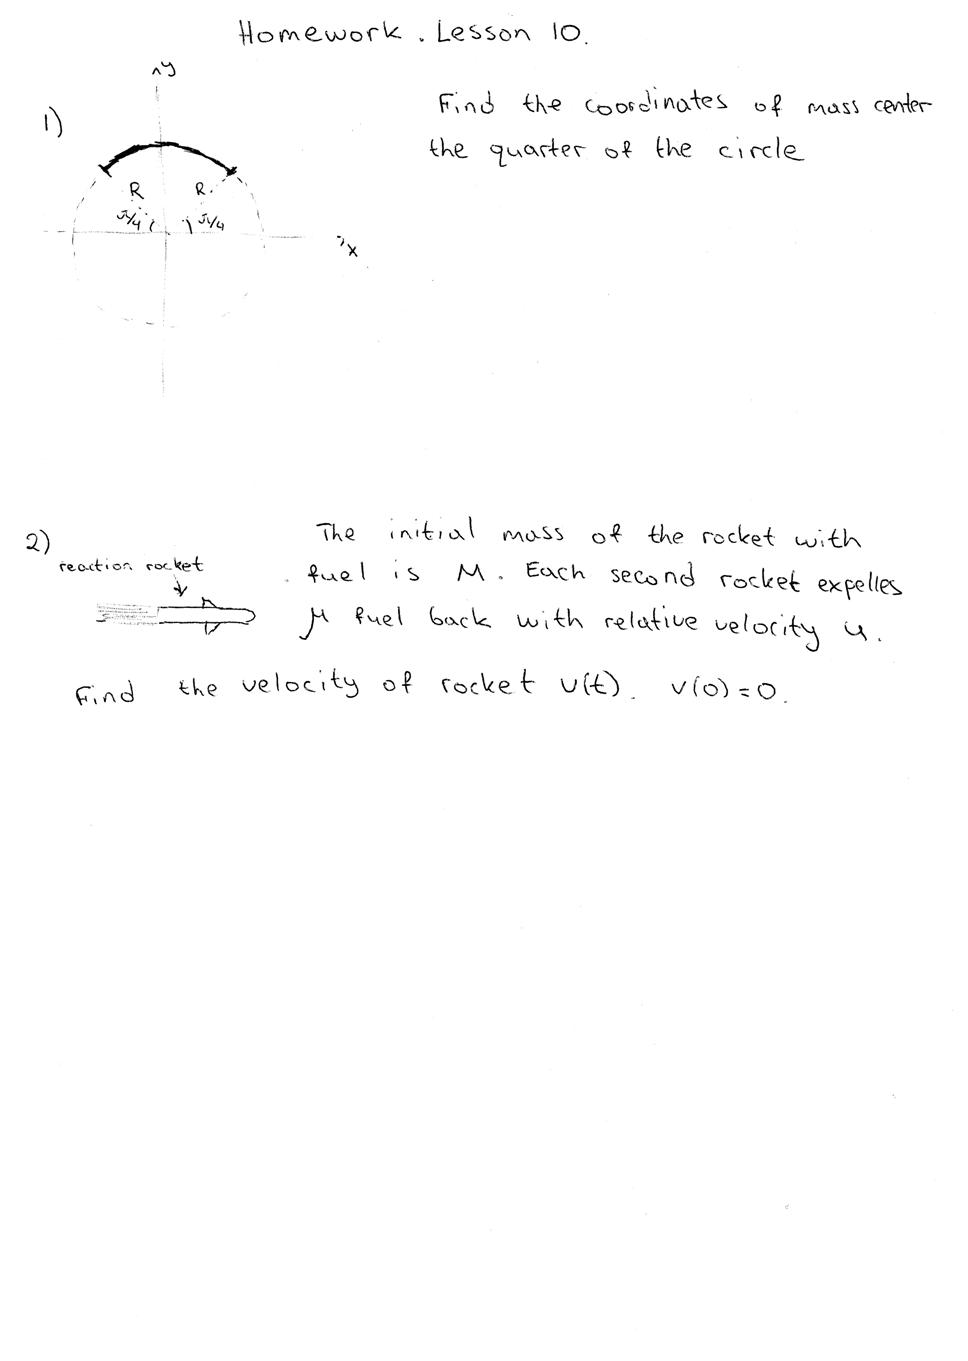 Homework. Lesson 10.
y
1)
Find the coordinates of mass center
the quarter of the circle
R R
π/4 π/4
x
2)
The initial mass of the rocket with
reaction rocket
fuel is M. Each second rocket expelles
μ fuel back with relative velocity u.
Find the velocity of rocket v(t). v(0)=0.